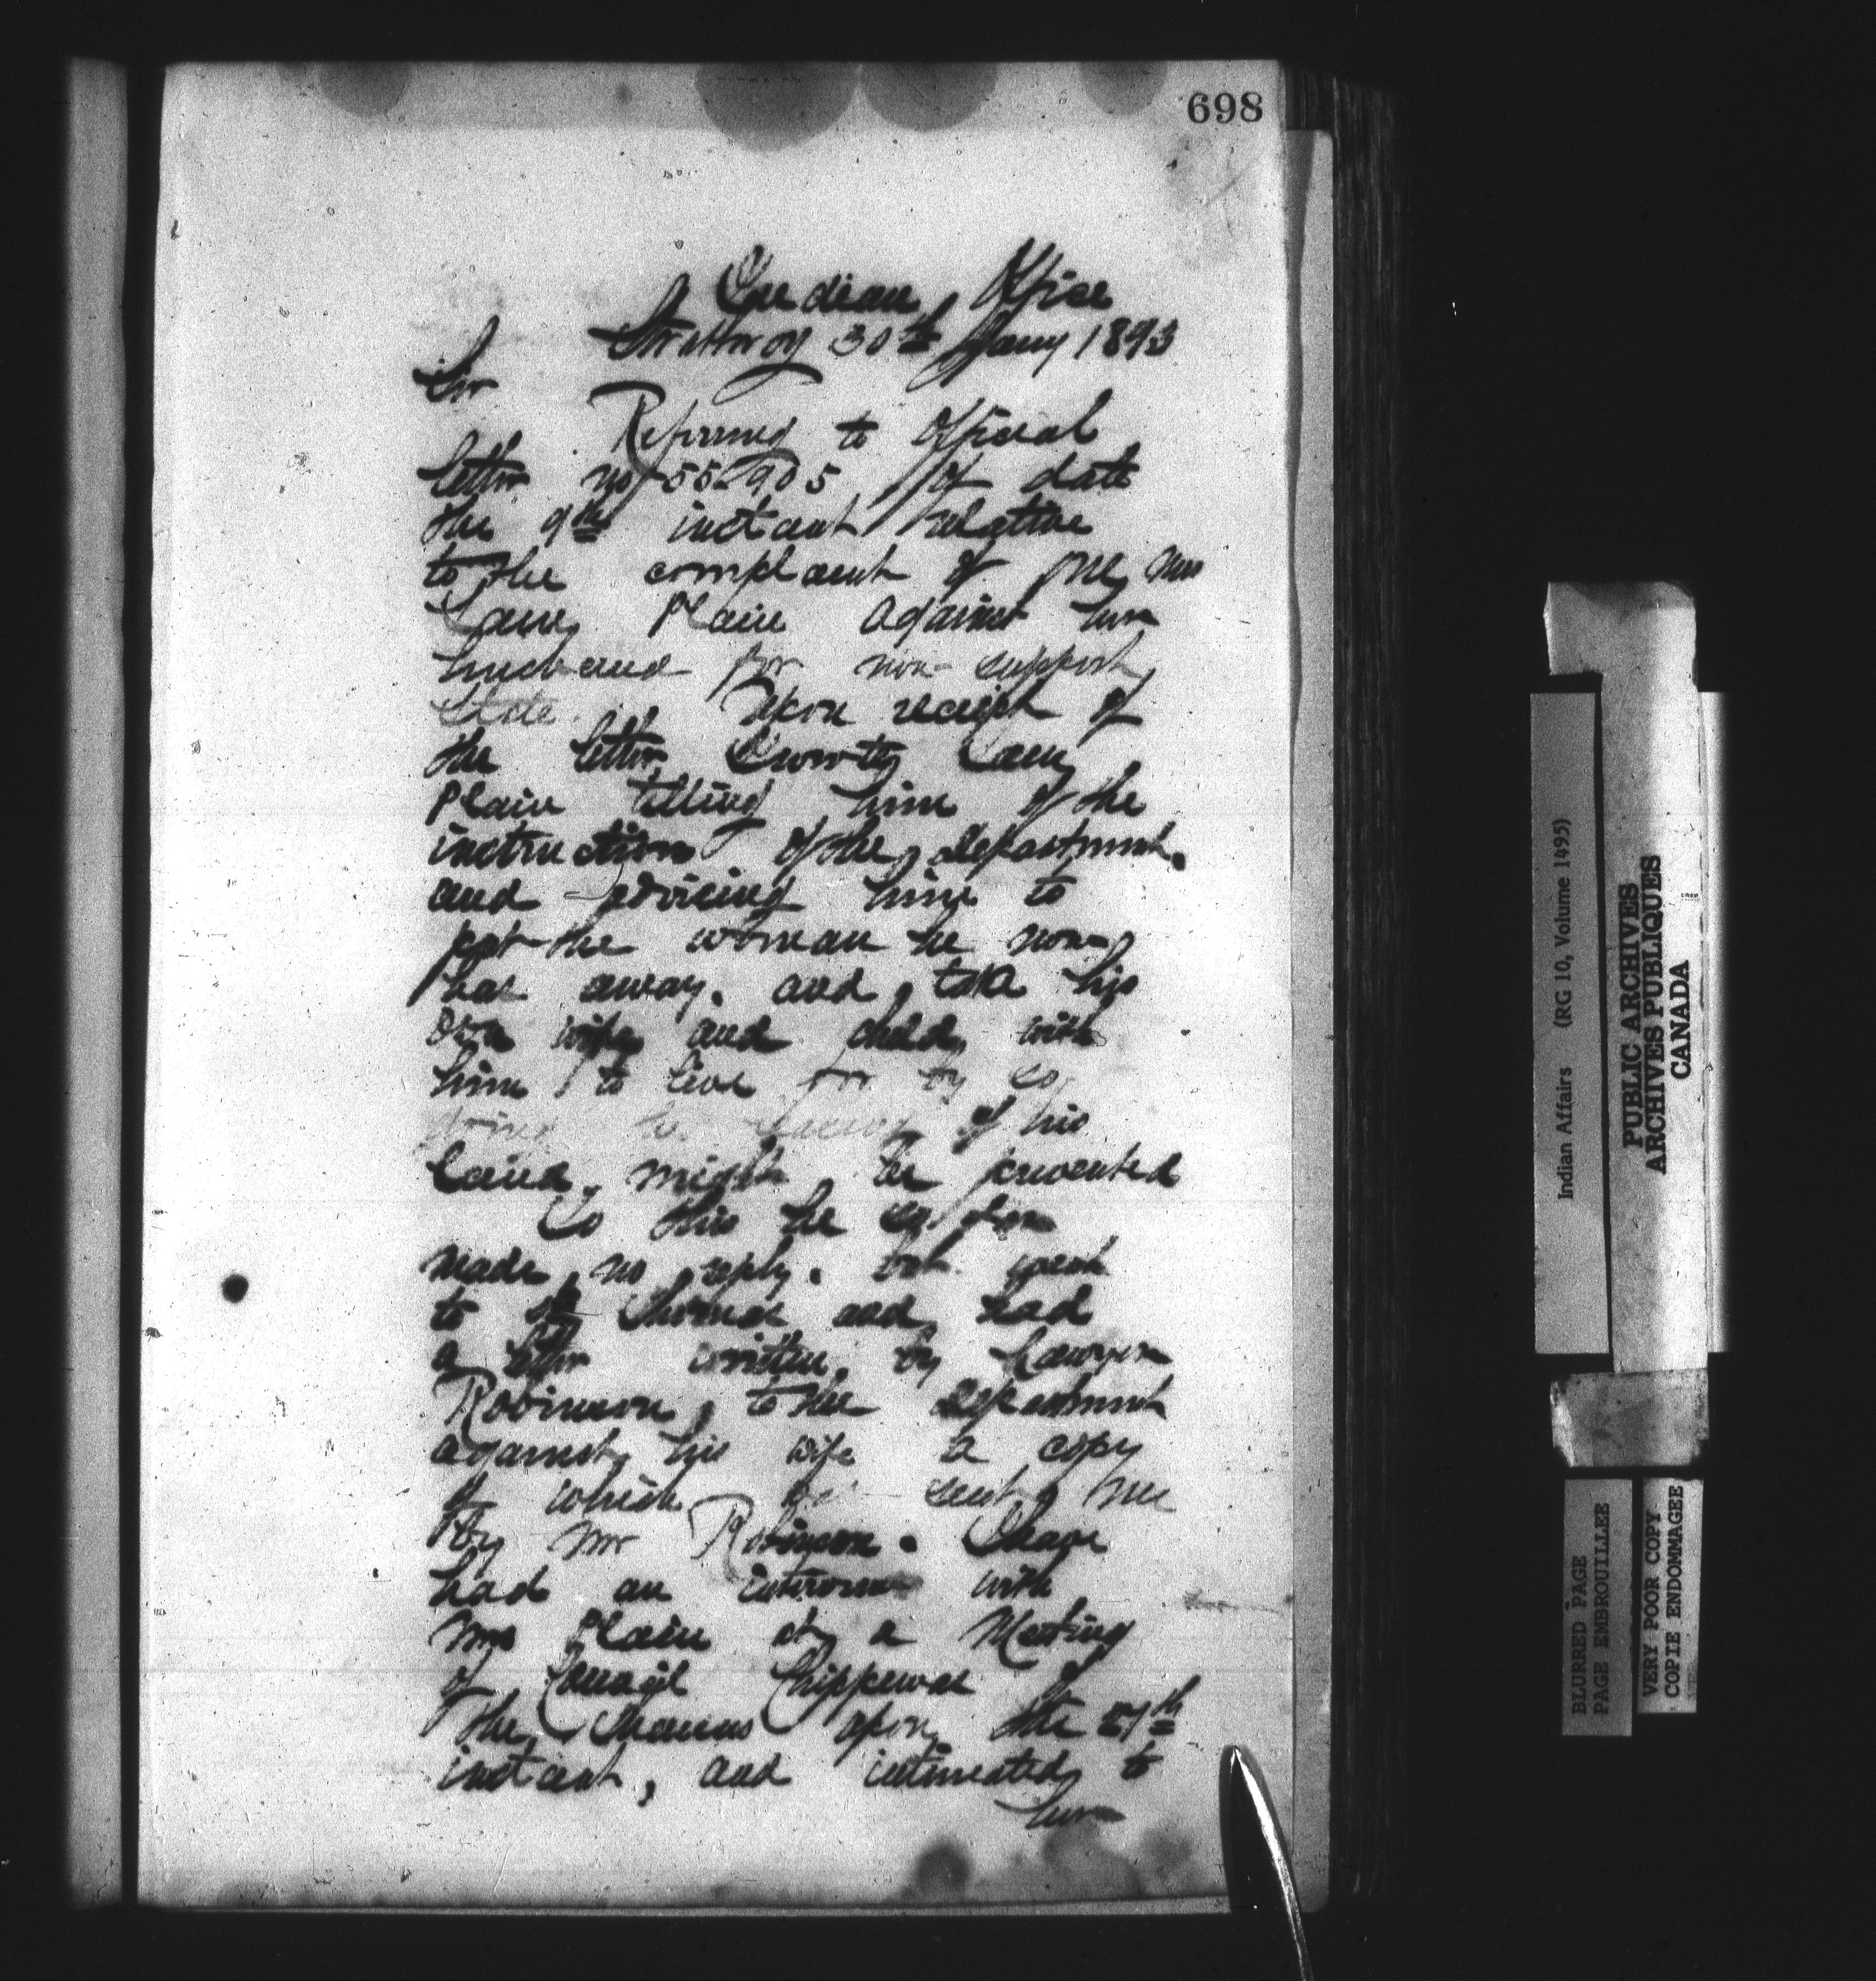 698
Indian Office
Strathroy 30th Jany 1893
Sir
Referring to Official
letter no 552905 of date
the 9th instant relative
to the complaint of one Mrs
Plain against her
husband for non-support
State Upon receipt of
the letter I wrote
Plain telling him of the
instructions of the department.
and advising him to
put the woman he now
has away. and take his
own wife and child with
him to live for by so
doing the of his
land might be prevented
To this he
made no reply. but went
to St Thomas and had
a letter written by Lawyer
Robinson, to the department
against his wife a copy
of which was sent me
by Mr Robinson. I have
had an interview with
Mrs Plain at a Meeting
of Council Chippewas of
the Thames upon the 27th
instant, and intimated to
her
Indian Affairs (RG 10, Volume 1495)
PUBLIC ARCHIVES
ARCHIVES PUBLIQUES
CANADA
BLURRED PAGE
PAGE EMBROUILLEE
VERY POOR COPY
COPIE ENDOMMAGEE